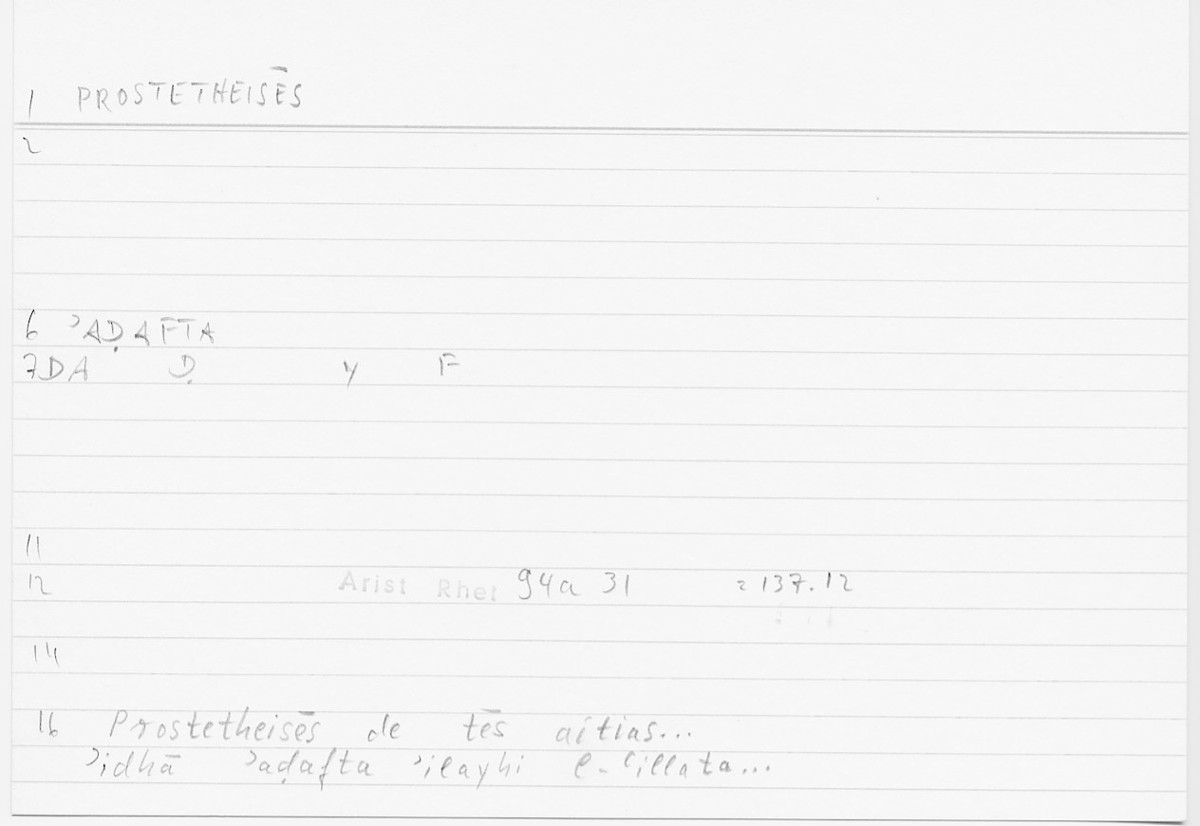 1 PROSTETHEISĒS
2
6 ʾAḌAFTA
7DA Ḍ y F
11
12 Arist Rhet 94a 31 = 137.12
14
16 Prostetheisēs de tēs aitías...
ʾidhā ʾaḍafta ʾilayhi l-ʿillata...